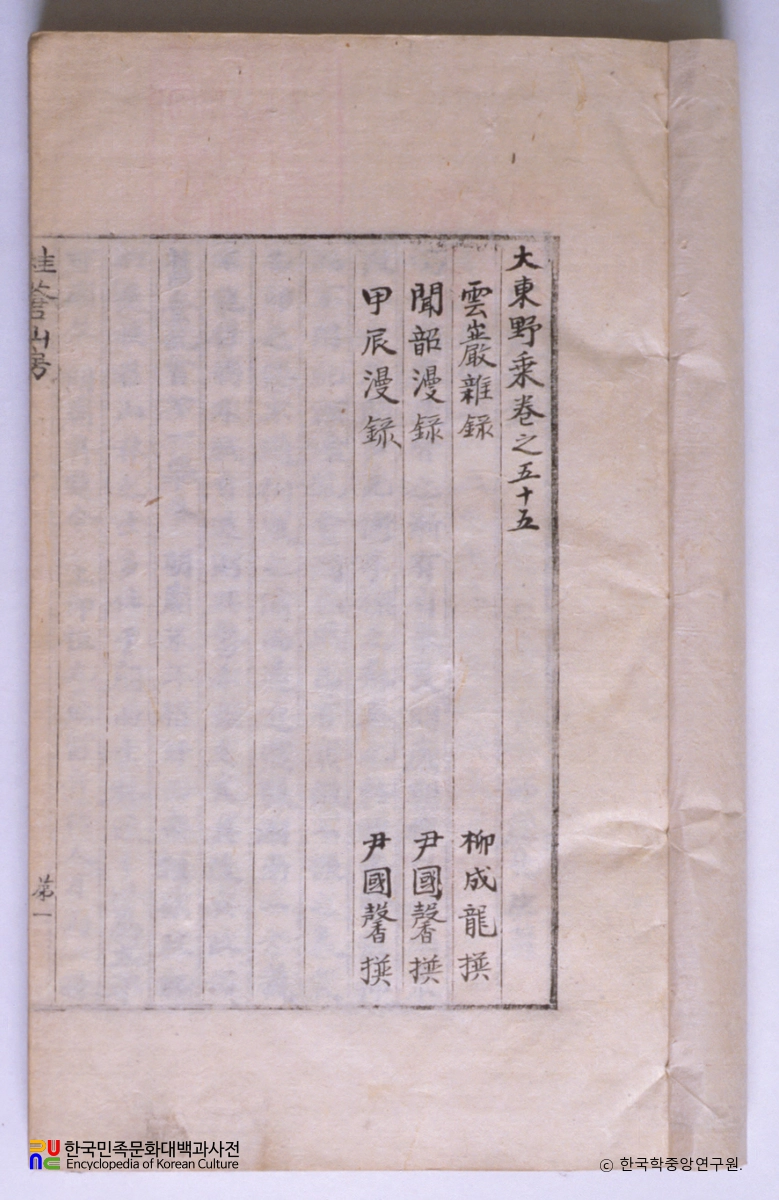 大東野乗卷之五十五
雲巖雜錄 柳成龍撰
聞韶漫錄 尹國馨撰
甲辰漫錄 尹國馨撰
蒼山房
第一
한국민족문화대백과사전
Encyclopedia of Korean Culture
© 한국학중앙연구원.